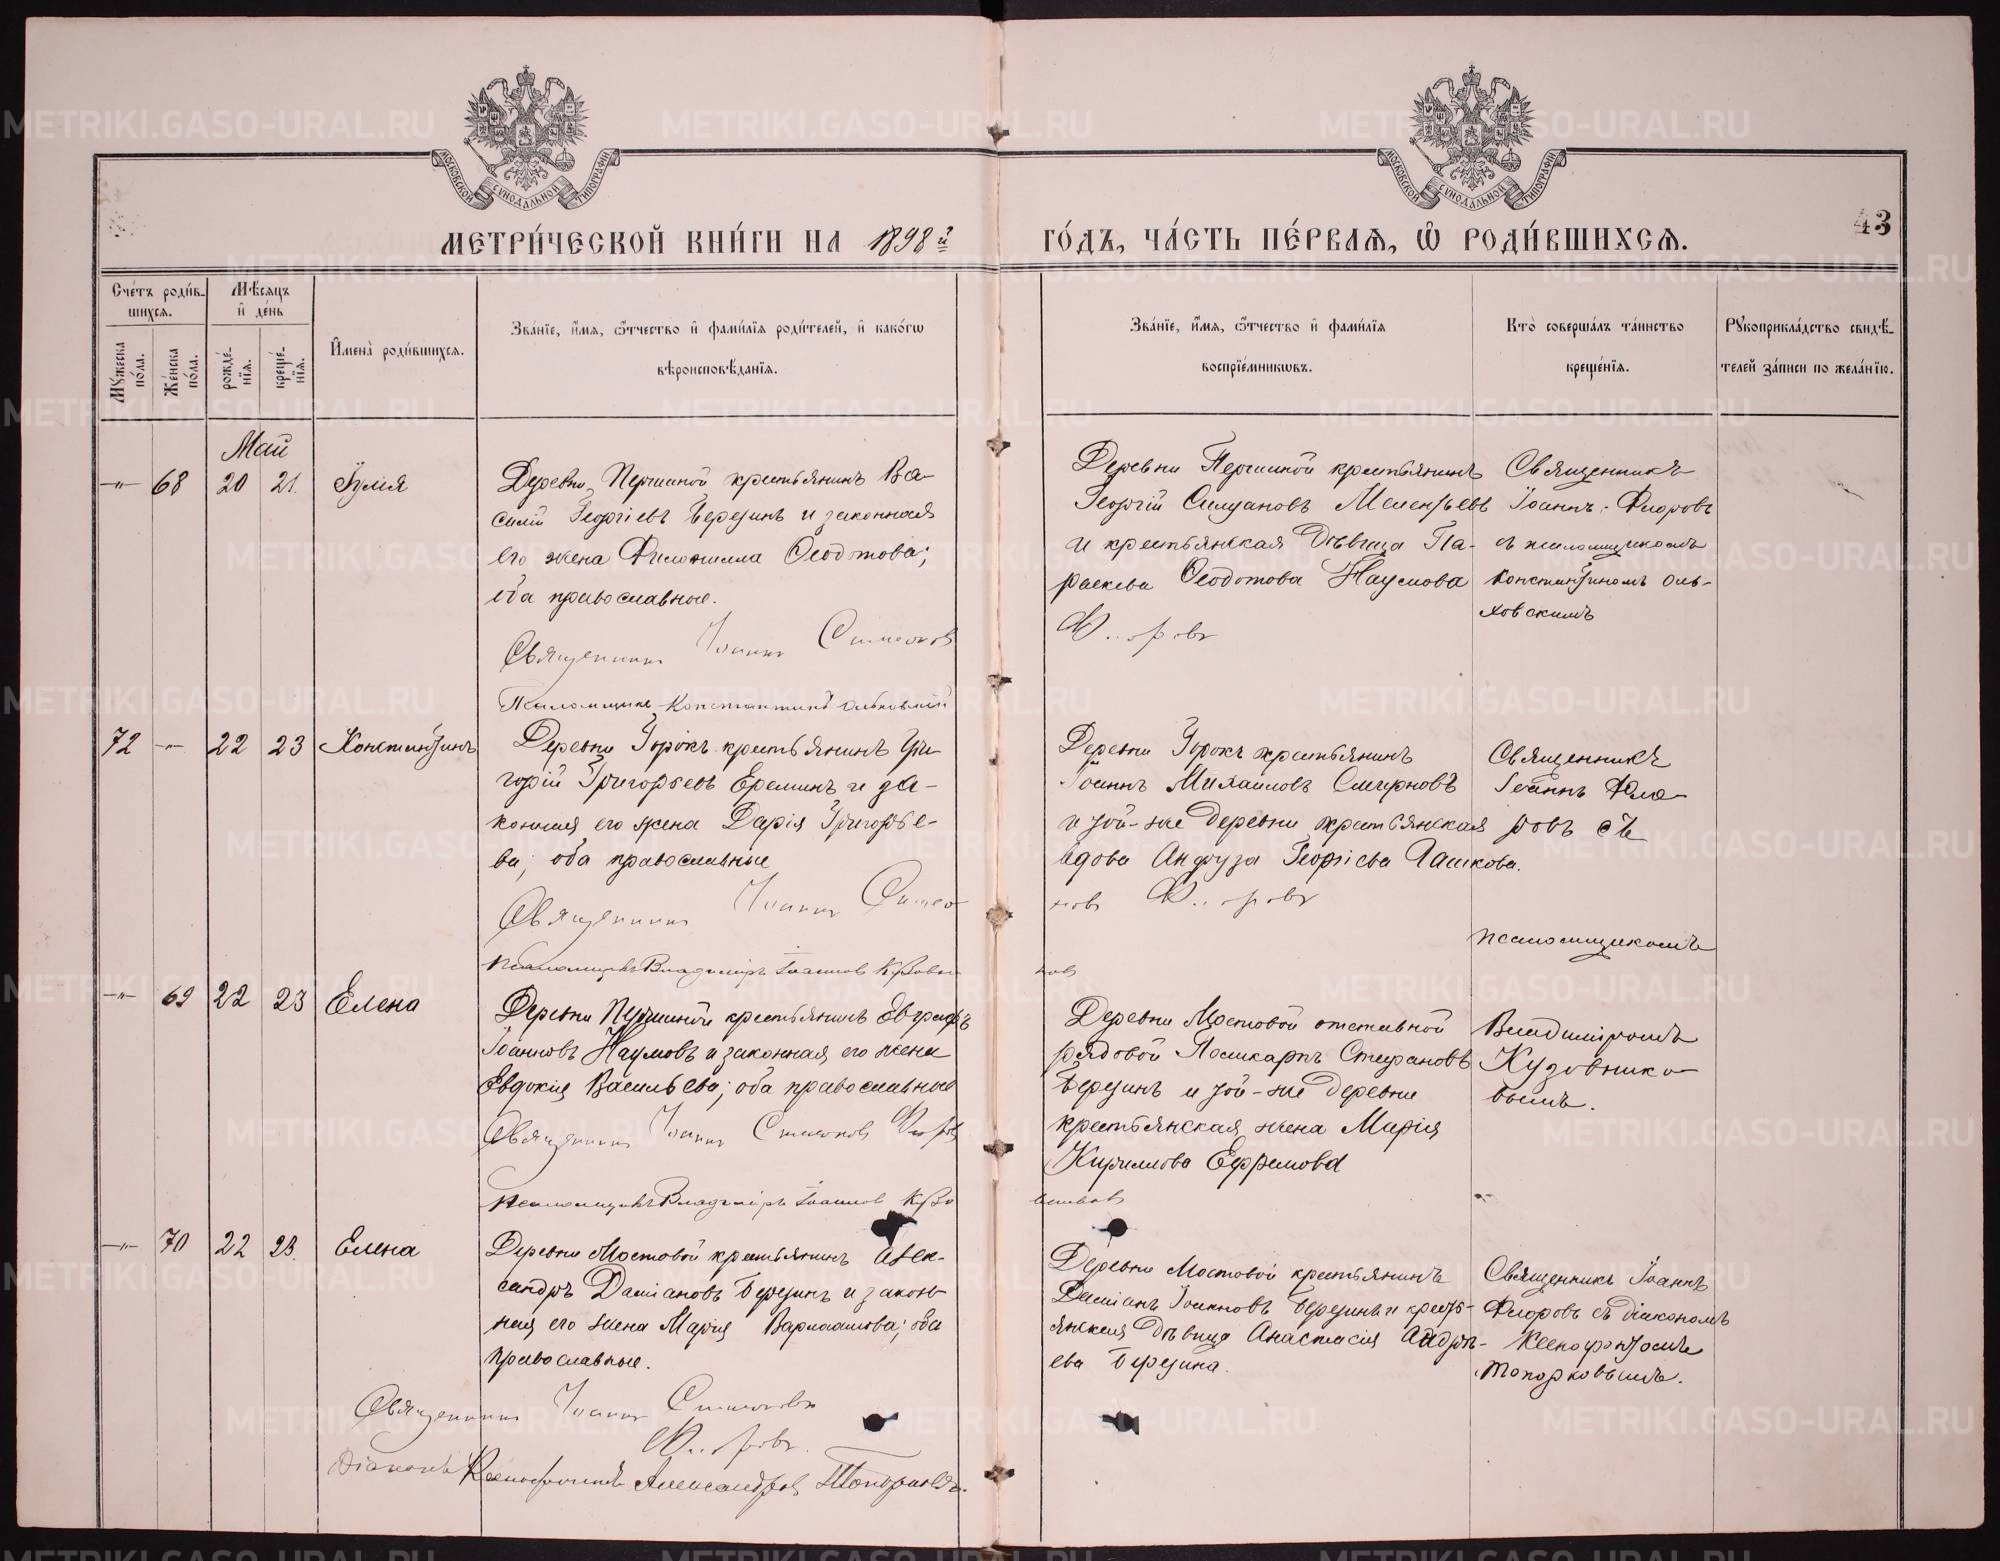 МЕТРИ́ЧЕСКОЙ КНИ́ГИ НА 1898й
ГО́ДЪ, ЧА́СТЬ ПЕ́РВАЯ, Ѽ РОДИ́ВШИХСѦ.
43
МОСКОВСКОЙ СѴНОДАЛЬНОЙ ТИПОГРАФІИ
МОСКОВСКОЙ СѴНОДАЛЬНОЙ ТИПОГРАФІИ
Сче́тъ роди́в-
шихсѧ.
Мꙋжеска по́ла.
Же́нска по́ла.
Мѣ́сѧцъ
и҆ де́нь
рожде́-
нїѧ.
креще́-
нїѧ.
И҆мена̀ роди́вшихсѧ.
Зва́нїе, и҆́мѧ, ѻ҆́тчество и҆ фами́лїѧ роди́телей, и҆ како́гѡ
вѣроисповѣ́данїѧ.
Зва́нїе, и҆́мѧ, ѻ҆́тчество и҆ фами́лїѧ
воспрїе́мникѡвъ.
Кто̀ соверша́лъ та́инство
креще́нїѧ.
Рꙋкоприкла́дство свидѣ́-
телей за́писи по жела́нїю.
Май
-"- 68 20 21. Іулія
Деревни Першиной крестьянинъ Ва-
силій Георгіевъ Березинъ и законная
его жена Филонилла Ѳеодотова;
оба православные.
Священникъ Іоаннъ Симеонов
Псаломщикъ Константинъ Ольховскій
Деревни Першиной крестьянинъ
Георгій Силуановъ Мелентьевъ
и крестьянская дѣвица Па-
раскева Ѳеодотова Наумова
Флоровъ
Священникъ
Іоаннъ Флоровъ
съ псаломщикомъ
Константиномъ Оль-
ховскимъ
72 -"- 22 23 Константинъ
Деревни Горокъ крестьянинъ Гри-
горій Григорьевъ Ереминъ и за-
конная его жена Дарія Григорье-
ва; оба православные
Священникъ Іоаннъ Симео
Псаломщикъ Владиміръ Іоаннов Кузовни
Деревни Горокъ крестьянинъ
Іоаннъ Михайловъ Смирновъ
и той-же деревни крестьянская
вдова Георгіева Пашкова.
новъ Флоровъ
ковъ
Священникъ
Іоаннъ Фло-
ровъ съ
псаломщикомъ
-"- 69 22 23 Елена
Деревни Першиной крестьянинъ Евграфъ
Іоанновъ Наумовъ и законная его жена
Евдокія Васильева; оба православные
Священникъ Іоаннъ Симеонов Флоровъ
Псаломщикъ Владиміръ Іоаннов Кузо
Деревни Мостовой отставной
рядовой Поликарпъ Стефановъ
Березинъ и той-же деревни
крестьянская жена Марія
Кириллова Ефремова
вниковъ
Владиміромъ
Кузовнико-
вымъ.
-"- 70 22 23. Елена
Деревни Мостовой крестьянинъ Алек-
сандръ Даміановъ Березинъ и закон-
ная его жена Марія Варлаамова; оба
православные.
Священникъ Іоаннъ Симеоновъ
Флоровъ.
Діаконъ Ксенофонтъ Александров Топорковъ.
Деревни Мостовой крестьянинъ
Даміанъ Іоанновъ Березинъ и кресть-
янская дѣвица Анастасія Андре-
ева Березина.
Священникъ Іоаннъ
Флоровъ съ діакономъ
Ксенофонтомъ
Топорковымъ.